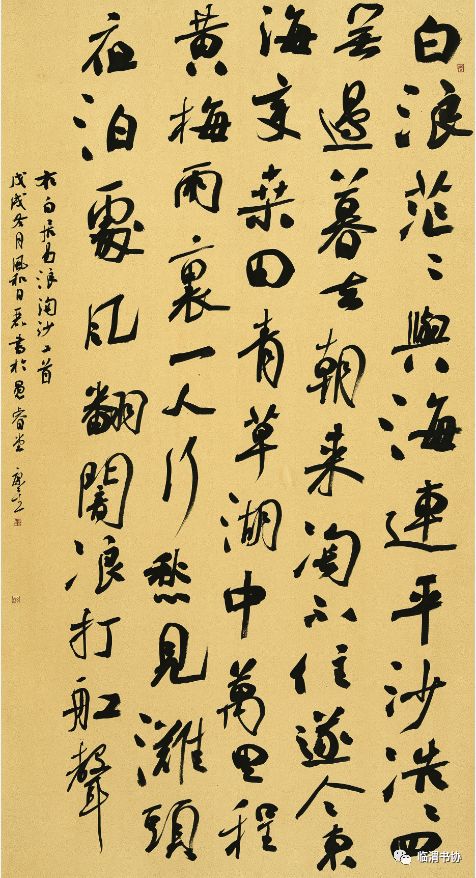 白浪茫〻與海連平沙浩〻四
無邊暮去朝来淘不住遂令東
海變桑田青草湖中萬里程
黄梅雨裏一人行愁見灘頭
夜泊處風翻闇浪打舡聲
右白居易浪淘沙二首
戊戌冬月風和日麗書於睿堂
临渭书协